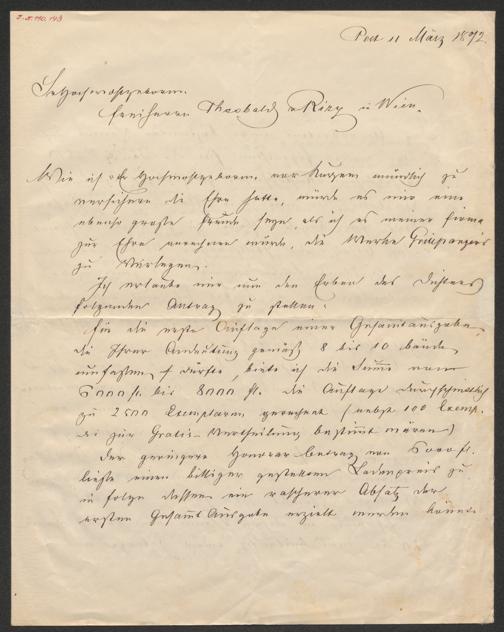 Pest 11 März 1872
Sr Hochwohlgeboren
Freiherrn Theobald v Rizy in Wien.
Wie ich Hochwohlgeboren vor Kurzem mündlich zu
versichern die Ehre hatte, würde es mir eine
ebenso große Freude sein, als ich es meiner Firma
zur Ehre anrechnen würde, die Werke Grillparzers
zu verlegen.
Ich erlaube mir nun den Erben des Dichters
folgenden Antrag zu stellen:
Für die erste Auflage einer Gesamtausgabe,
die Ihrer Andeutung gemäß 8 bis 10 Bände
umfassen dürfte, biete ich die Summe von
6000 fl. bis 8000 fl. die Auflage durchschnittlich
zu 2500 Exemplaren gerechnet (nebst 100 Exemp.
die zur Gratis-Vertheilung bestimmt wären)
Der geringere Honorar-betrag von 6000 fl.
ließe einen billiger gestellten Ladenpreis zu
in folge dessen ein rascherer Absatz der
ersten Gesamt Ausgabe erzielt werden könnte